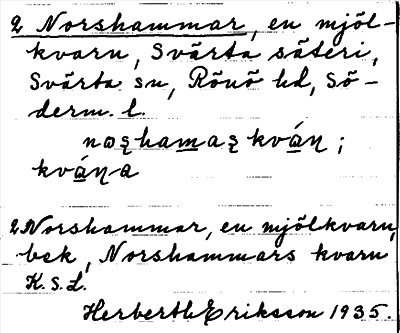 2 Norshammar, en mjöl-
kvarn, Svärta säteri,
Svärta sn, Rönö hd, Sö-
derm. l.
noʂhamaʂ kváɳ;
kváɳa
2 Norshammar, en mjölkvarn,
bek, Norshammars kvarn
K.S.L.
Herberth Eriksson 1935.